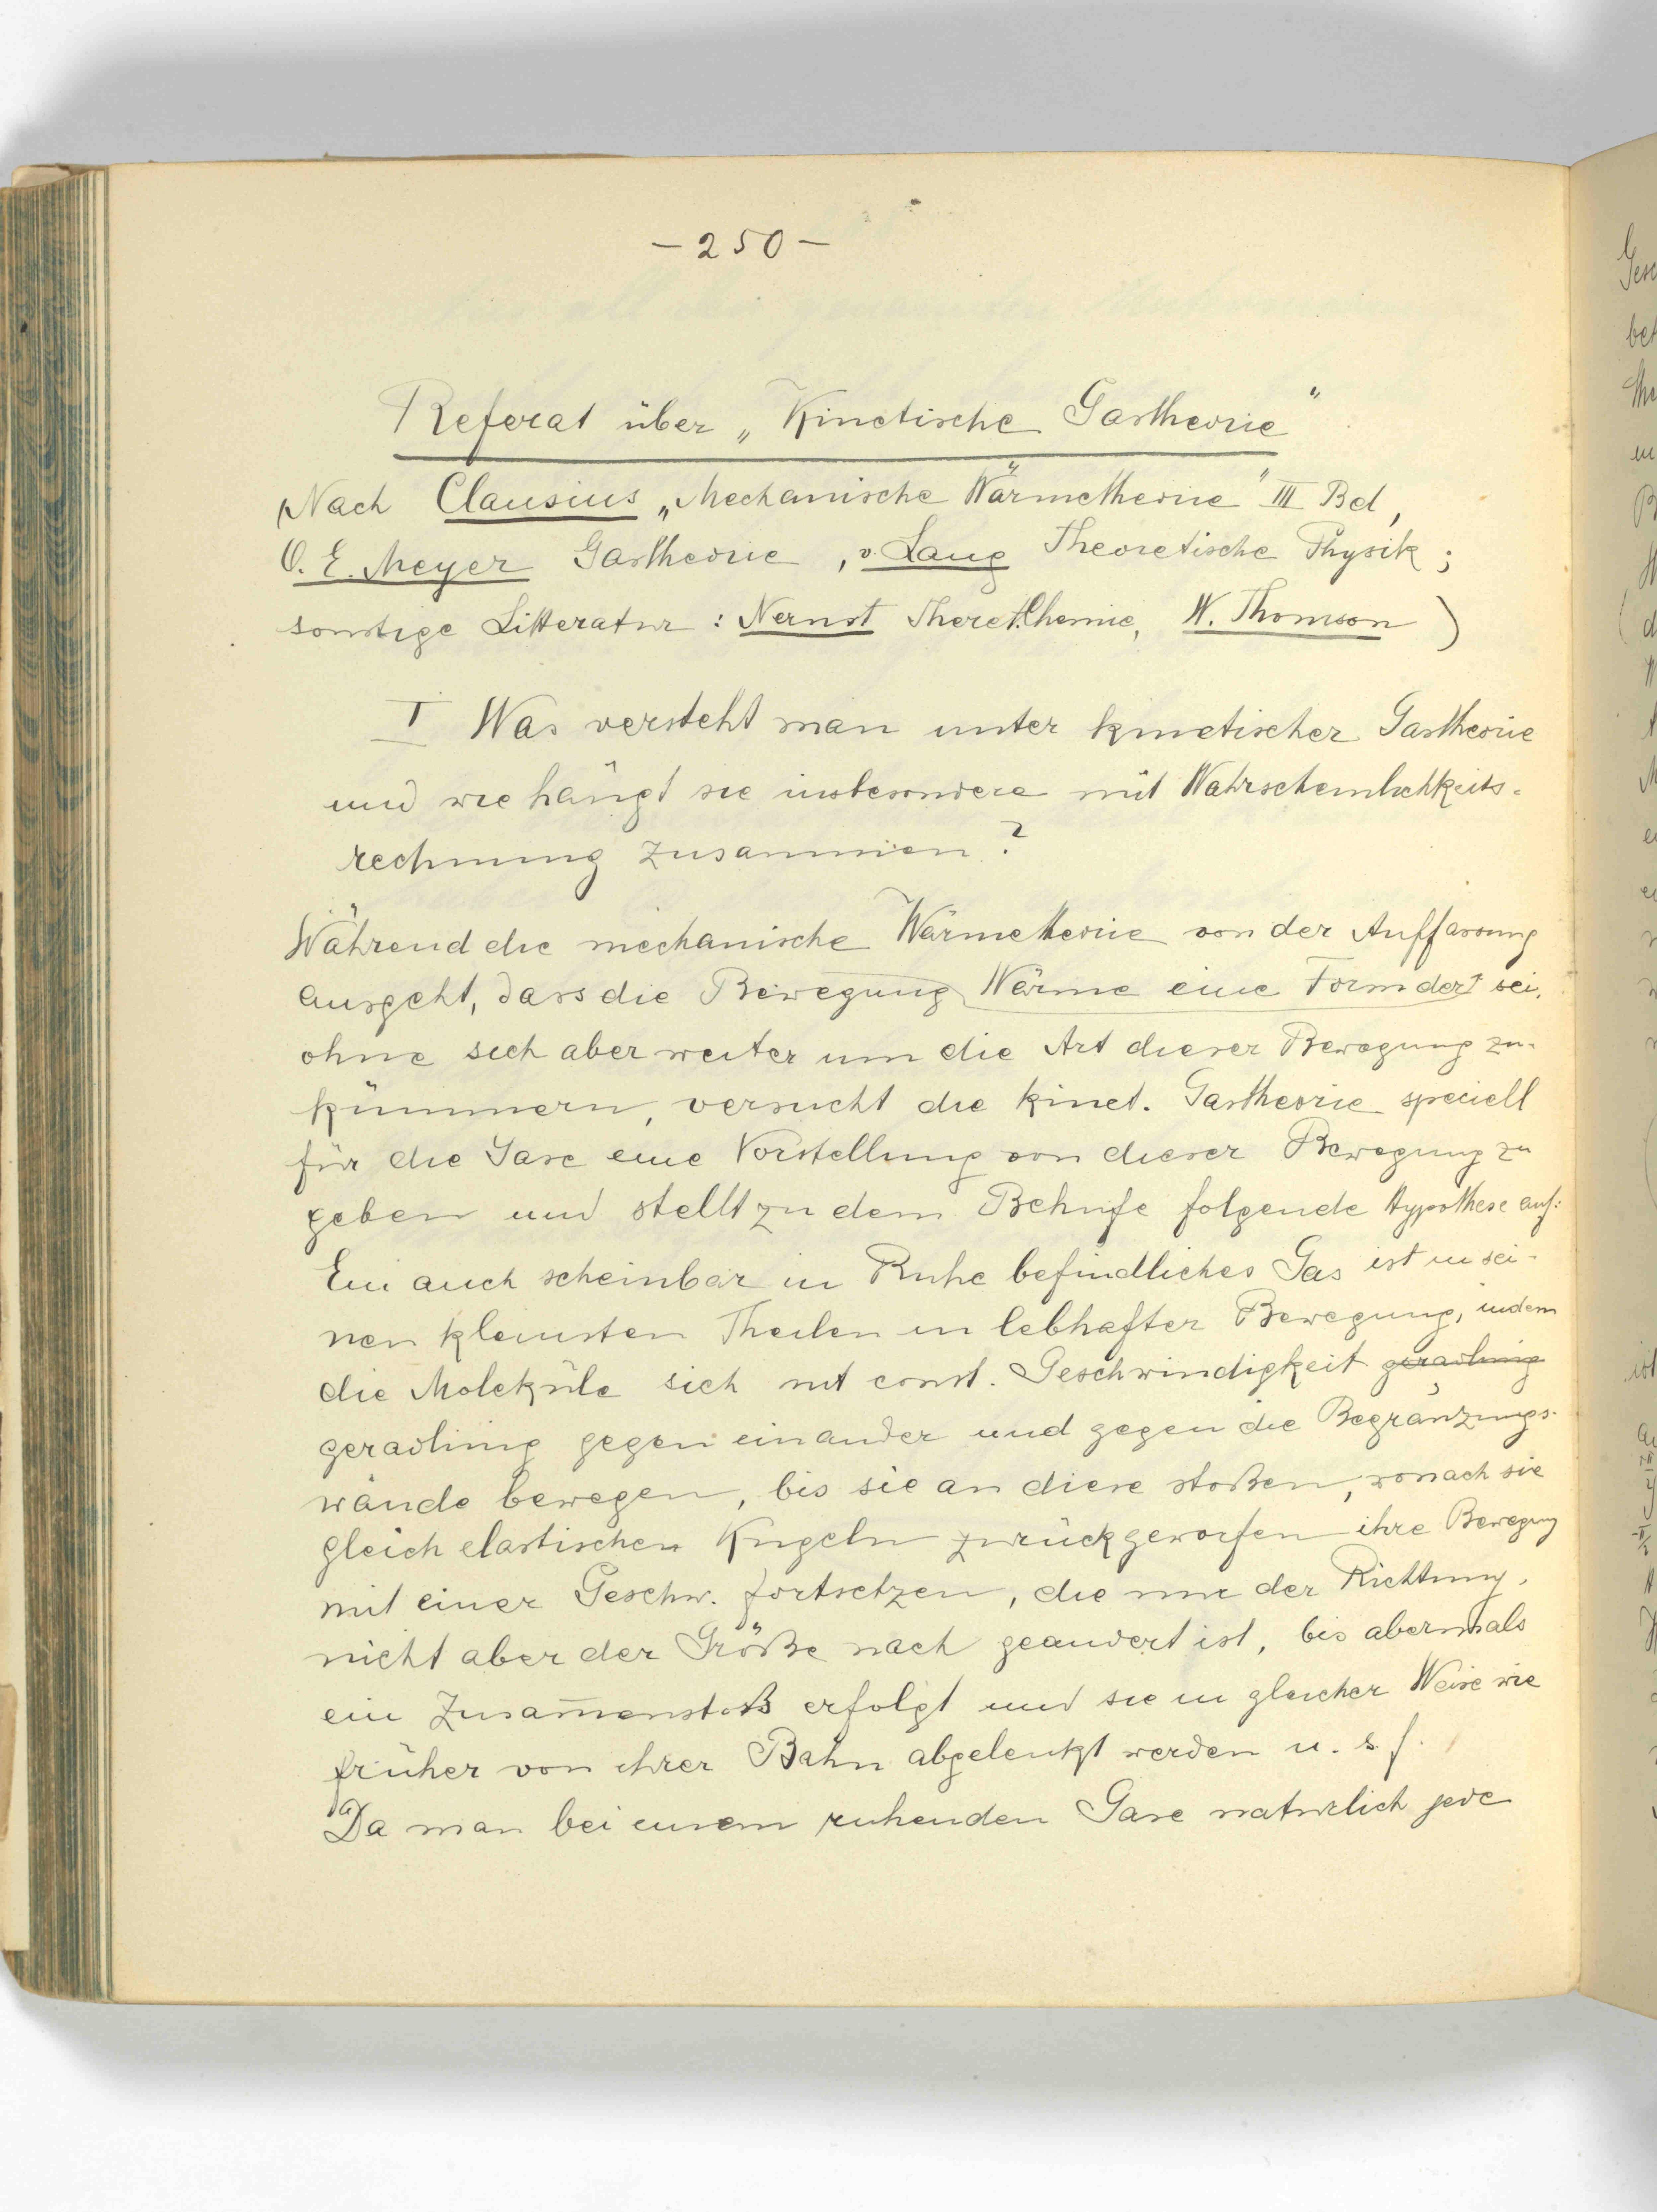 - 250 -
Referat über „Kinetische Gastheorie"
(Nach Clausius „Mechanische Wärmetheorie" III Bd,
O. E. Meyer Gastheorie, v. Lang Theoretische Physik;
sonstige Litteratur: Nernst Theret. Chemie, W. Thomson)
I Was versteht man unter kinetischer Gastheorie
und wie hängt sie insbesondere mit Wahrscheinlichkeits-
rechnung zusammen?
Während die mechanische Wärmetheorie von der Auffassung
ausgeht, dass die Bewegung Wärme eine Form der sei,
ohne sich aber weiter um die Art dieser Bewegung zu
kümmern, versucht die kinet. Gastheorie speciell
für die Gase eine Vorstellung von dieser Bewegung zu
geben und stellt zu dem Behufe folgende Hypothese auf:
Ein auch scheinbar in Ruhe befindliches Gas ist in sei-
nen kleinsten Theilen in lebhafter Bewegung, indem
die Moleküle sich mit const. Geschwindigkeit geradlinig
geradlinig gegen einander und gegen die Begränzungs-
wände bewegen, bis sie an diese stoßen, wonach sie
gleich elastischen Kugeln zurückgeworfen ihre Bewegung
mit einer Geschw. fortsetzen, die nur der Richtung,
nicht aber der Größe nach geandert ist, bis abermals
ein Zusam̅enstoß erfolgt und sie in gleicher Weise wie
früher von ihrer Bahn abgelenkt werden u. s. f.
Da man bei einem ruhenden Gase naturlich jede
Gesch
bet